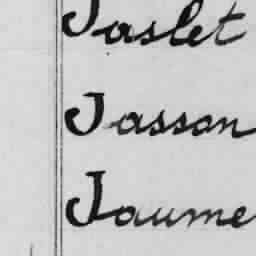 Jaslet
Jasson
Jaume